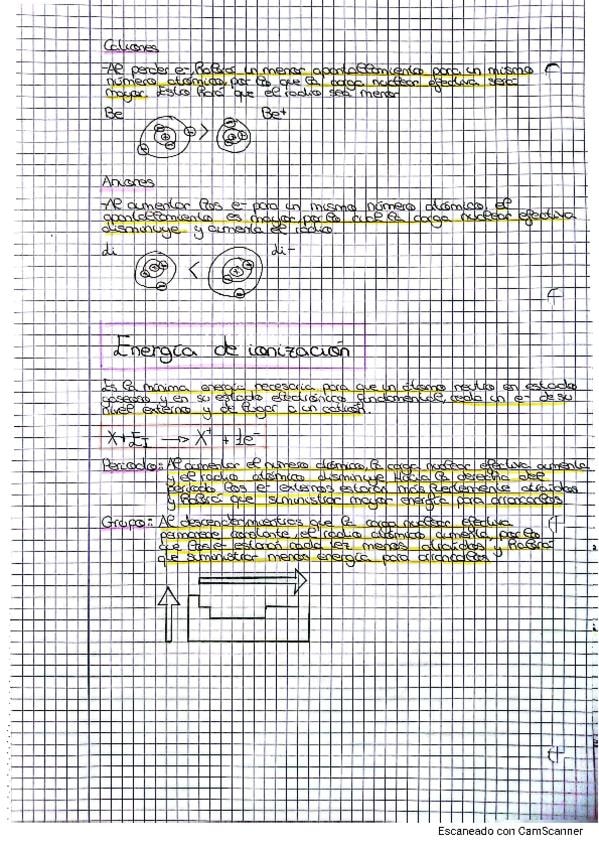 Cationes
-Al perder e-, habrá un menor apantallamiento para un mismo
número atómico, por lo que la carga nuclear efectiva será
mayor. Esto hará que el radio sea menor
Be > Be+
Aniones
-Al aumentar los e- para un mismo número atómico, el
apantallamiento es mayor, por lo que la carga nuclear efectiva
disminuye y aumenta el radio
di < di-
Energía de ionización
Es la mínima energía necesaria para que un átomo neutro en estado
gaseoso y en su estado electrónico fundamental, ceda un e- de su
nivel externo y dé lugar a un catión.
X + EI → X+ + 1e-
Periodo: Al aumentar el número atómico, la carga nuclear efectiva aumenta
y el radio atómico disminuye. Hacia la derecha del
periodo los e- externos estarán más fuertemente atraídos
y habrá que suministrar mayor energía para arrancarlos
Grupo: Al descender mientras que la carga nuclear efectiva
permanece constante, el radio atómico aumenta, por lo
que los e- estarán cada vez menos atraídos y habrá
que suministrar menos energía para arrancarlos
Escaneado con CamScanner